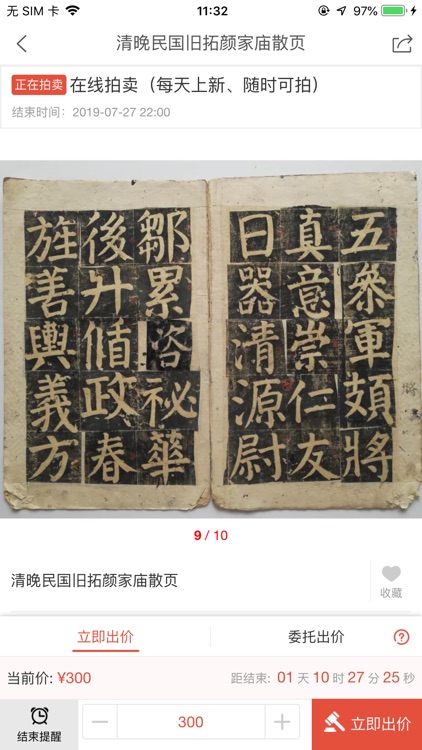 无 SIM 卡
11:32
97%
清晚民国旧拓颜家庙散页
正在拍卖 在线拍卖（每天上新、随时可拍）
结束时间：2019-07-27 22:00
五叅軍頗將
真意崇仁友
日器清源尉
鄒累咨祕華
後升脩政春
旌善輿義方
9 / 10
清晚民国旧拓颜家庙散页
收藏
立即出价
委托出价
当前价: ¥300
距结束: 01 天 10 时 27 分 25 秒
结束提醒
300
立即出价